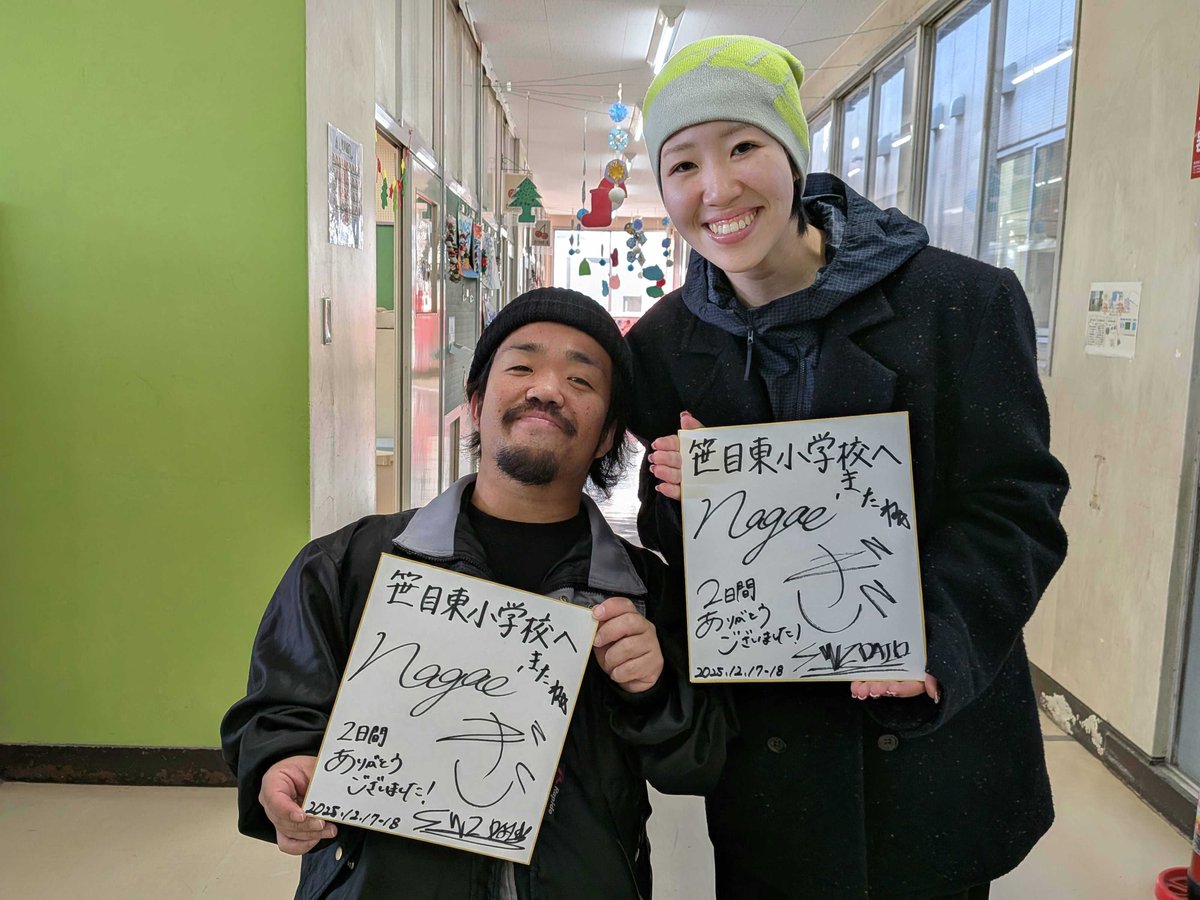 笹目東小学校へ
また
Nagae
2日間
ありがとう
ございました!
2025.12.17-18
笹目東小学校へ
また
Nagae
2日間
ありがとう
ございました!
2025.12.17-18